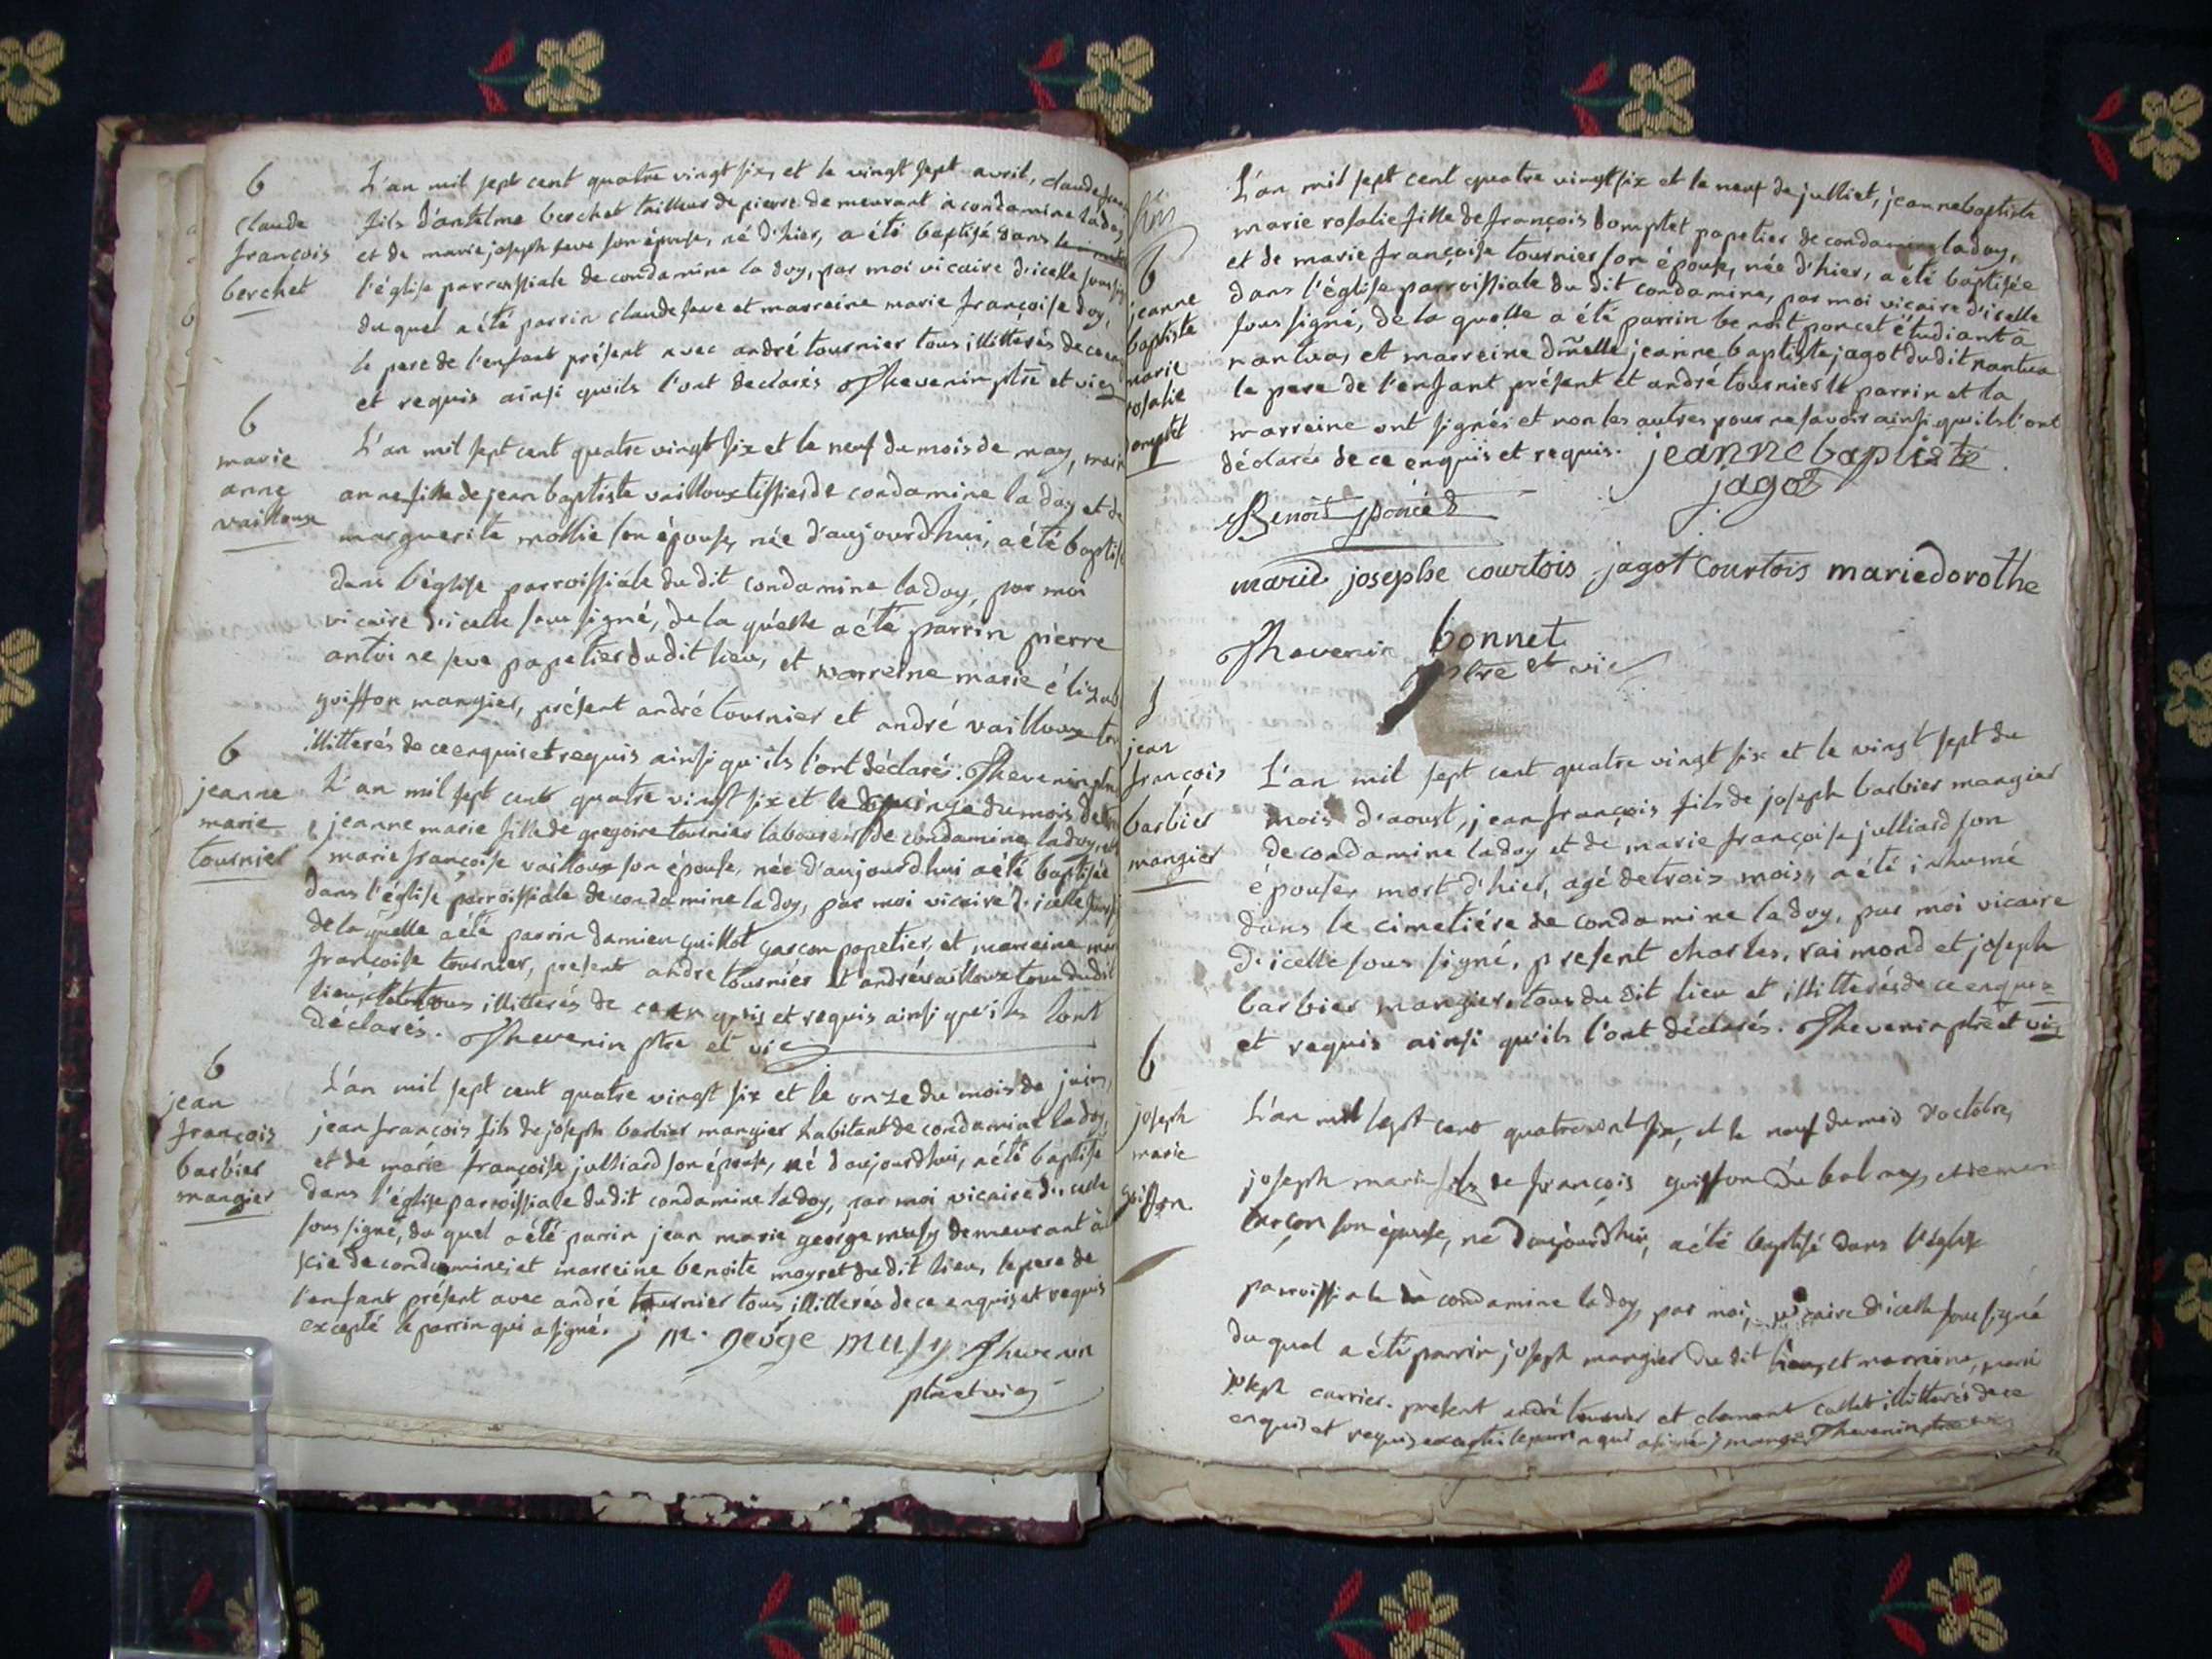 6
claude
françois
berchet
L'an mil sept cent quatre vingt six, et le vingt sept avril, claude
fils d'antelme berchet tailleur de pierre demeurant à condamine la doy
et de marie joseph seve son épouse, né d'hier, a été baptisé dans
l'église parroissiale de condamine la doy, par moi vicaire d'icelle
du quel a été parrin claude seve et marreine marie françoise doy,
le pere de l'enfant présent avec andré tournier tous illitterés de ce
et requis ainsi qu'ils l'ont declarés Thevenin ptre et vic
6
marie
anne
vailloux
L'an mil sept cent quatre vingt six et le neuf du mois de may,
anne fille de jean baptiste vailloux tissier de condamine la doy et de
marguerite mollie son épouse, née d'aujourd'hui, a été
dans l'église parroissiale du dit condamine la doy, par moi
vicaire d'icelle sous signé, de la quelle a été parrin pierre
antoine seve papetier du dit lieu, et marreine marie
goiffon mangier, présent andré tournier et andré vailloux
illitterés de ce enquis et requis ainsi qu'ils l'ont déclarés. Thevenin
6
jeanne
marie
tournier
L'an mil sept cent quatre vingt six et le quinze du mois de
jeanne marie fille de gregoire tournier laboureur de condamine la doy
marie françoise vailloux son épouse, née d'aujourd'hui a été baptisée
dans l'église parroissiale de condamine la doy, par moi vicaire d'icelle
de la quelle a été parrin damien guillot garcon papetier, et marreine
françoise tournier, present andre tournier et andré vailloux tous du dit
lieu, tous illitterés de ce enquis et requis ainsi qu'ils l'ont
déclarés. Thevenin ptre et vic
6
jean
françois
barbier
mangier
L'an mil sept cent quatre vingt six et le onze du mois de juin,
jean françois fils de joseph barbier mangier habitant de condamine la doy,
et de marie françoise julliard son épouse, né d'aujourd'hui, a été baptisé
dans l'église parroissiale du dit condamine la doy, par moi vicaire d'icelle
sous signé, du quel a été parrin jean marie george musy demeurant à
scie de condamine, et marreine benoite moyret du dit lieu, le pere de
l'enfant présent avec andré tournier tous illitterés de ce enquis et requis
excepté le parrin qui a signé. j m. george musy Thevenin
ptre et vic
6
jeanne
baptiste
marie
rosalie
L'an mil sept cent quatre vingt six et le neuf de julliet, jeanne baptiste
marie rosalie fille de françois domptet papetier de condamine la doy,
et de marie françoise tournier son épouse, née d'hier, a été baptisée
dans l'église parroissiale du dit condamine, par moi vicaire d'icelle
sous signé, de la quelle a été parrin benoit poncet étudiant à
nantua, et marreine dmelle jeanne baptiste jagot du dit nantua
le pere de l'enfant présent et andré tournier le parrin et la
marreine ont signés et non les autres pour ne savoir ainsi qu'ils l'ont
déclarés de ce enquis et requis. jeanne baptiste
jagot
Benoit Poncet
marie josephe courtois jagot courtois marie dorothe
Thevenin bonnet
ptre et vic
jean
françois
barbier
mangier
L'an mil sept cent quatre vingt six et le vingt sept du
mois d'aoust, jean françois fils de joseph barbier mangier
de condamine la doy et de marie françoise julliard son
épouse, mort d'hier, agé de trois mois, a été inhumé
dans le cimetiére de condamine la doy, par moi vicaire
d'icelle sous signé, present charles, raimond et joseph
barbier mangier, tous du dit lieu et illitterés de ce enquis
et requis ainsi qu'ils l'ont déclarés. Thevenin ptre et vic
6
joseph
marie
goiffon
L'an mil sept cent quatre vint six, et le neuf du mois d'octobre,
joseph marie fils de françois goiffon du balmey, et
son épouse, né d'aujourd'hui, a été baptisé dans l'église
parroissiale de condamine la doy, par moi, vicaire d'icelle sous signé
du quel a été parrin joseph mangier du dit lieu, et marreine, marie
joseph carrier. present andré tournier et clemont collet illitterés de ce
enquis et requis excepté le parrin qui a signé j mangier Thevenin ptre et vic